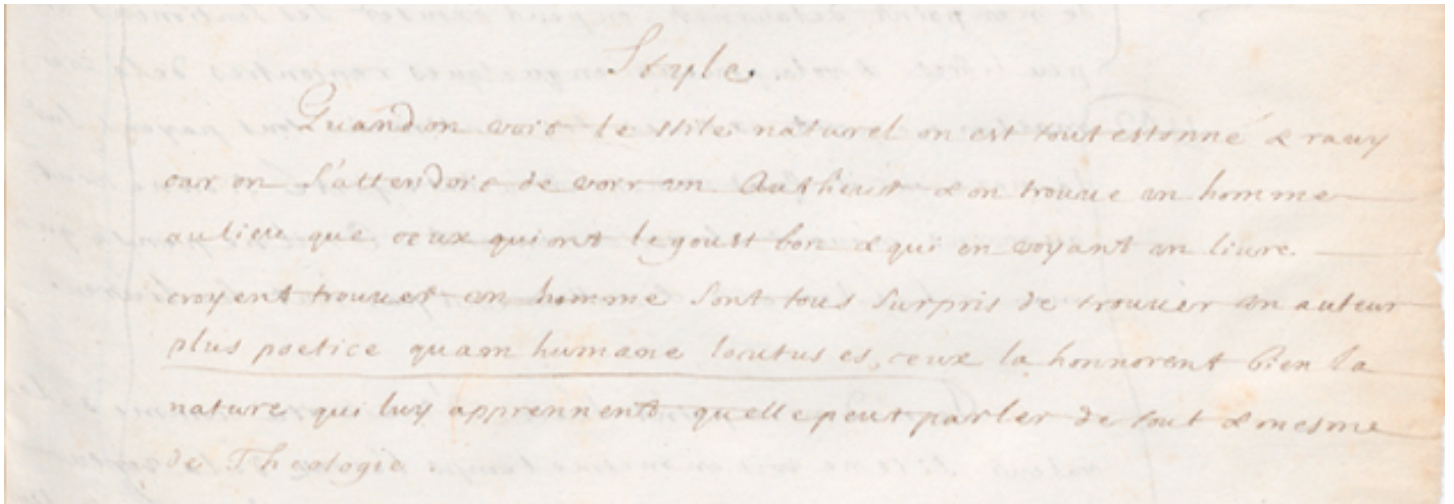 Style.
Quand on voit le stile naturel on est tout estonné & rauy
car on s'attendoit de voir vn Autheur & on trouue vn homme
au lieu que ceux qui ont le goust bon & qui en voyant vn liure
croyent trouuer vn homme sont tous surpris de trouuer vn auteur
plus poetice quam humane locutus es, ceux la honnorent bien la
nature qui luy apprennent quelle peut parler de tout & mesme
de Theologie